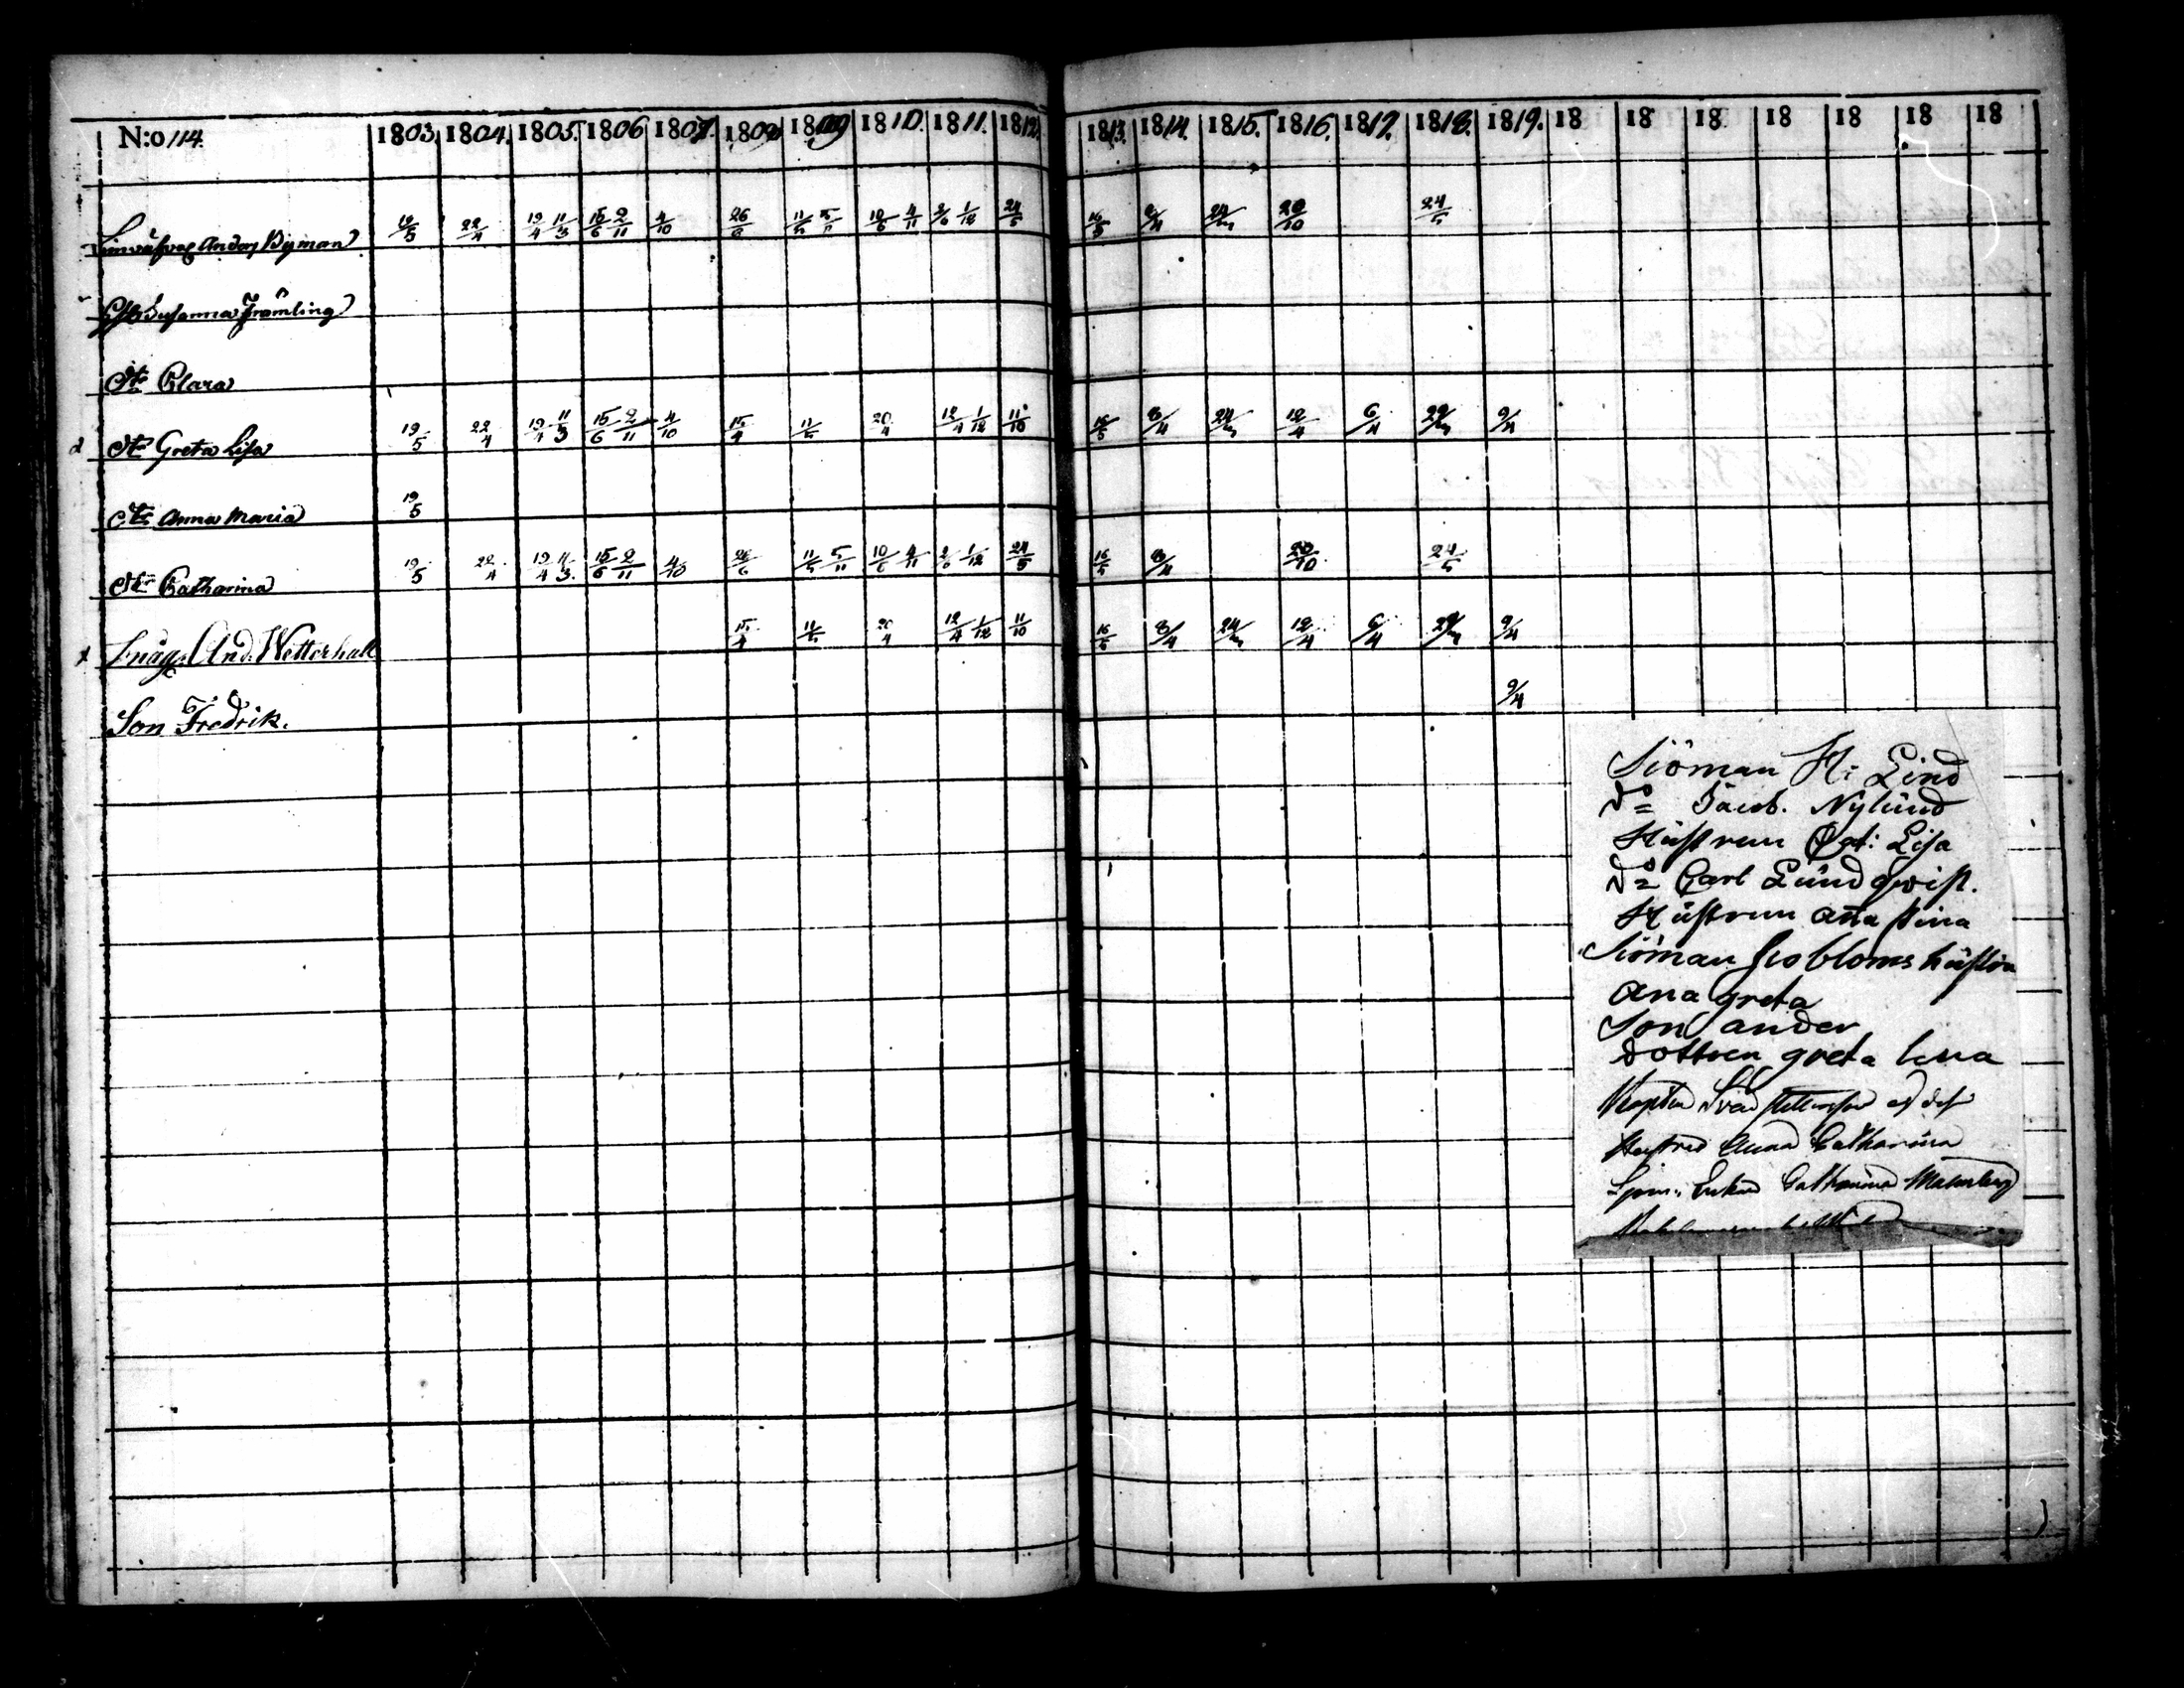 N:o 114. 1803. 1804. 1805. 1806 1807. 1808 1809 1810. 1811. 1812. 1813. 1814. 1815. 1816. 1817. 1818. 1819. 18 18 18 18 18 18 18
Linväfvar Anders Byman 19/5 22/4 19/4 11/3 15/6 2/11 4/10 26/6 11/5 5/11 10/6 4/11 2/6 1/12 24/5 16/5 3/4 24/3 20/10 24/5
Susanna Främling
Dr Clara
Dr Greta Lisa 19/5 22/4 19/4 11/3 15/6 2/11 4/10 15/4 11/5 20/4 12/4 1/12 11/10 16/5 3/4 24/3 12/4 6/4 29/3 9/4
Dr Anna Maria 19/5
Dr Catharina 19/5 22/4 19/4 11/3 15/6 2/11 4/10 26/6 11/5 5/11 10/6 4/11 2/6 1/12 24/5 16/5 3/4 20/10 24/5
And. Wetterhall 15/4 11/5 20/4 12/4 1/12 11/10 16/5 3/4 24/3 12/4 6/4 29/3 9/4
Son Fredrik. 9/4
Siöman H: Lind
do Jacob. Nylund
Hustrun Cat: Lisa
do Carl Lundqwist.
Hustrun Ana Stina
Siöman hustru
Ana greta
Son ander
dottren greta lena
Hustrus Anna Catharina
Enkan Catharina Malmberg